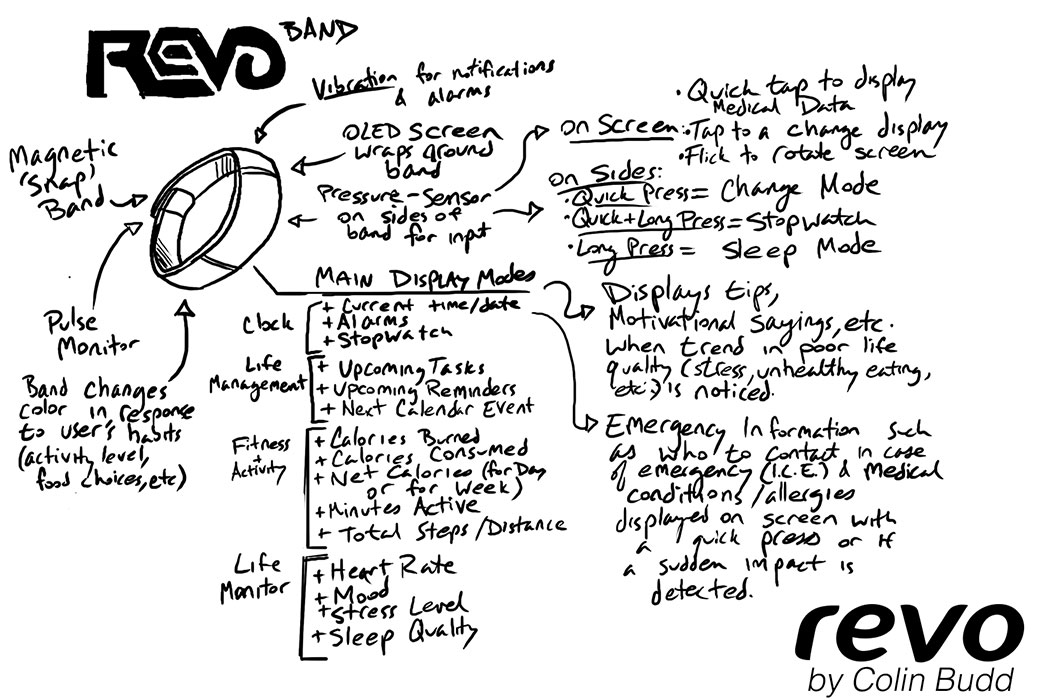 REVO BAND
Vibration for notifications
& alarms
OLED Screen
wraps around
band
Pressure-Sensor
on sides of
band for input
On Screen:
• Quick tap to display
Medical Data
• Tap to a change display
• Flick to rotate screen
On Sides:
• Quick Press = Change Mode
• Quick + Long Press = Stopwatch
• Long Press = Sleep Mode
Magnetic
'Snap'
Band
Pulse
Monitor
Band changes
color in response
to user's habits
(activity level,
food choices, etc)
MAIN DISPLAY MODES
Clock
+ Current time/date
+ Alarms
+ Stopwatch
Life
Management
+ Upcoming Tasks
+ Upcoming Reminders
+ Next Calendar Event
Fitness
+
Activity
+ Calories Burned
+ Calories Consumed
+ Net Calories (for Day
or for Week)
+ Minutes Active
+ Total Steps/Distance
Life
Monitor
+ Heart Rate
+ Mood
+ Stress Level
+ Sleep Quality
Displays tips,
Motivational sayings, etc.
when trend in poor life
quality (stress, unhealthy eating,
etc.) is noticed.
Emergency Information such
as who to contact in case
of emergency (I.C.E.) & Medical
conditions/allergies
displayed on screen with
a quick press or if
a sudden impact is
detected.
revo
by Colin Budd